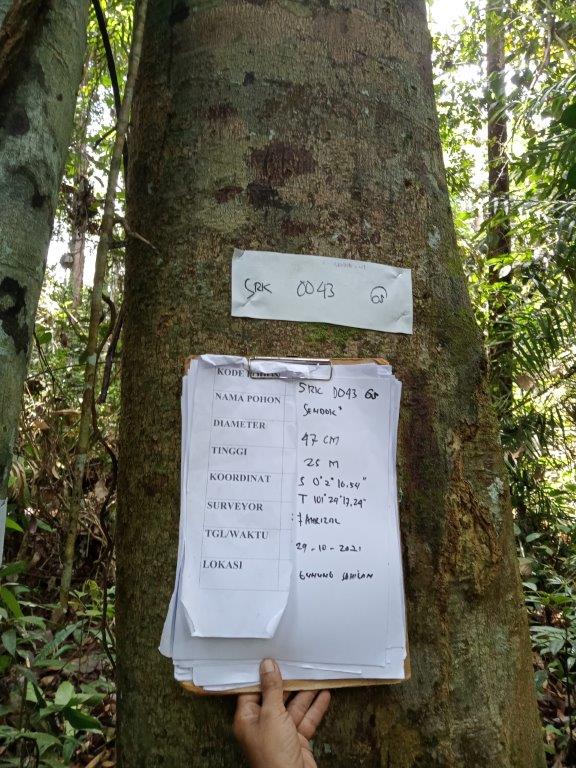 SRK 0043 GS
KODE POHON SRK 0043 GS
NAMA POHON SENDOK²
DIAMETER 47 CM
TINGGI 25 M
KOORDINAT S 0°2'16.54"
T 101°24'17,24"
SURVEYOR : FAHRIZAL
TGL/WAKTU 29-10-2021
LOKASI GUNUNG SAHILAN